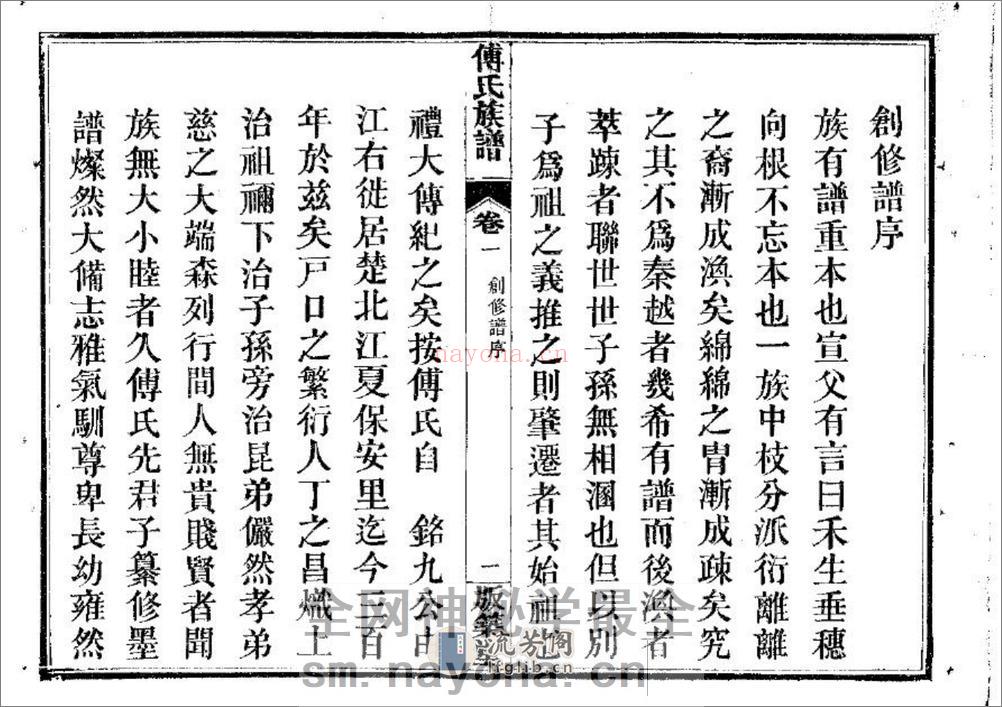 創修譜序
族有譜重本也宣父有言曰禾生垂穗
向根不忘本也一族中枝分派衍離離
之裔漸成渙矣綿綿之胄漸成疎矣究
之其不爲秦越者幾希有譜而後渙者
萃踈者聯世世子孫無相溷也但以別
子爲祖之義推之則肇遷者其始祖也
傅氏族譜
卷一
創修譜序
一
版築堂
禮大傳紀之矣按傅氏自 銘九公由
江右徙居楚北江夏保安里迄今三百
年於玆矣戸口之繁衍人丁之昌熾上
治祖禰下治子孫旁治昆弟儼然孝弟
慈之大端森列行間人無貴賤賢者聞
族無大小睦者久傅氏先君子纂修墨
譜燦然大備志雅氣馴尊卑長幼雍然
nayona.cn
全网神秘学最全
sm.nayona.cn
流芳阁
lfglib.cn